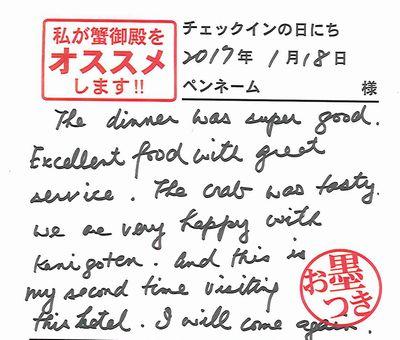 私が蟹御殿を
オススメ
します!!
チェックインの日にち
2017年 1月18日
ペンネーム 様
The dinner was super good.
Excellent food with great
service. The crab was tasty.
we are very happy with
kani goten. And this is
my second time visiting
this hotel. I will come again.
お墨つき